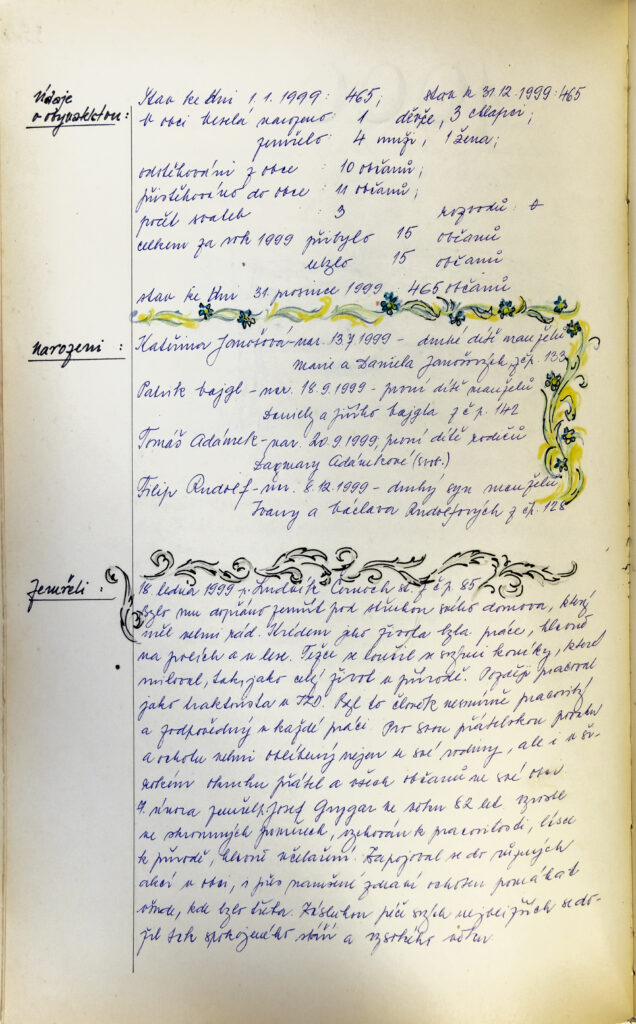 Údaje
o obyvatelstvu:
Stav ke dni 1.1.1999: 465; stav k 31.12.1999: 465
V obci Veselá narozeno: 1 děvče, 3 chlapci;
zemřelo: 4 muži, 1 žena;
odstěhování z obce : 10 občanů;
přistěhováno do obce : 11 občanů;
počet svateb : 3 rozvodů:
celkem za rok 1999 přibylo 15 občanů
ubylo 15 občanů
stav ke dni 31. prosince 1999: 465 občanů
Narozeni :
Kateřina Janošová - nar. 13.7.1999 - druhé dítě manželů
Marie a Daniela Janošových z čp. 133
Patrik Vajgl - nar. 18.9.1999 - první dítě manželů
Daniely a Jiřího Vajgla z čp. 142
Tomáš Adámek - nar. 20.9.1999, první dítě rodičů
Dagmary Adámkové (svob.)
Filip Rudolf - nar. 8.12.1999 - druhý syn manželů
Ivany a Václava Rudolfových z čp. 128
Zemřeli :
18. ledna 1999 p. Ludvík Černoch st. z čp. 85
Bylo mu dopřáno zemřít pod střechou svého domova, který
měl velmi rád. Krédem jeho života byla práce, hlavně
na polích a v lese. Těžce se loučil s svými koníky, které
miloval, tak, jako celý život v přírodě. Později pracoval
jako traktorista v JZD. Byl to člověk nesmírně pracovitý
a zodpovědný v každé práci. Pro svou přátelskou povahu
a ochotu velmi oblíbený nejen ve své rodiny, ale i v ši-
rokém okruhu přátel a všech občanů ve své obci.
7. února zemřel p. Josef Grygar ve věku 82 let. Vyrostl
ve skromných poměrech, vychován k pracovitosti, lásce
k přírodě, hlavně včelaření. Zapojoval se do různých
akcí v obci, i přes narušené zdraví ochoten pomáhat
všude, kde bylo třeba. Zásluhou péče svých nejbližších se do-
žil tak spokojeného stáří a vysokého věku.